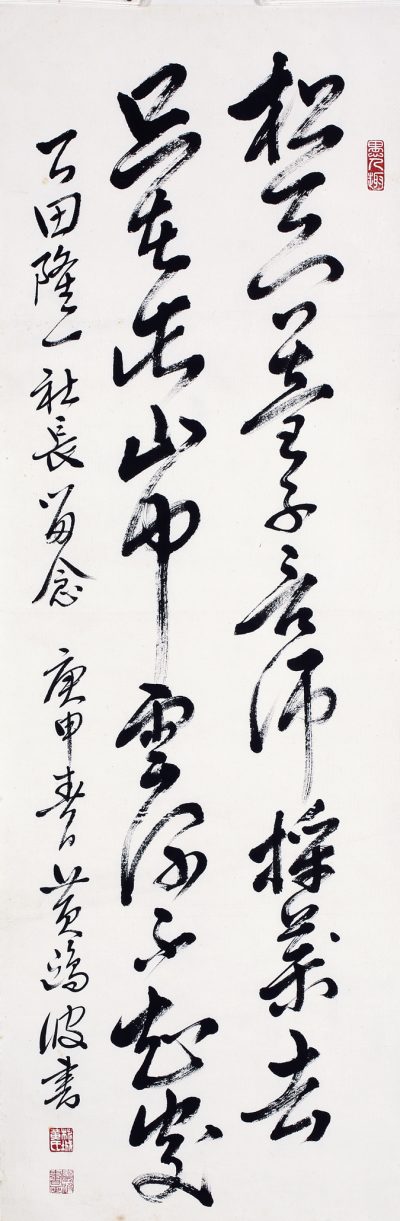 松下問童子言師採藥去
只在此山中雲深不知處
田隆一社長留念 庚申春日 黃鷗波書